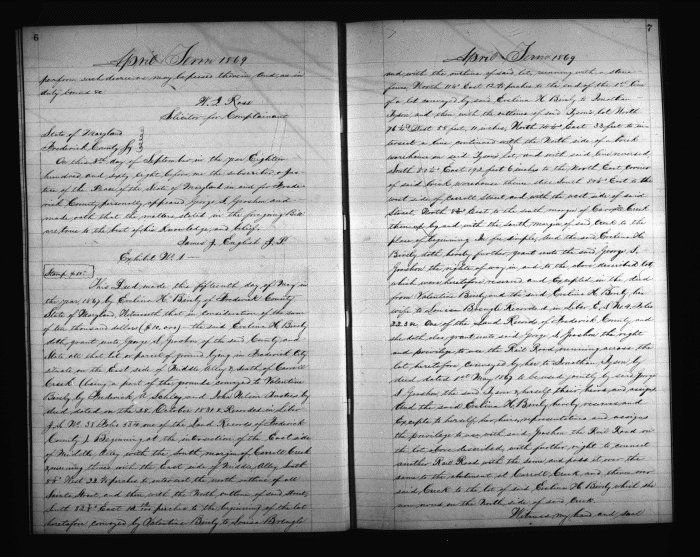 6
April Term 1869
perform such decree as may be passed therein And as in
duty bound &c
W. J. Ross
Solicitor for Complainant
State of Maryland
Frederick County
On this 8th day of September in the year Eighteen
hundred and sixty eight before me the subscriber a Jus-
tice of the Peace of the State of Maryland in and for Frede-
rick County personally appeared George S. Groshon and
made oath that the matters stated in the foregoing Bill
are true to the best of his Knowledge and belief.
James J. English J.P.
Exhibit No. 1
This Deed made this fifteenth day of May in
the year 1867 by Eveline H. Buerly of Frederick County
State of Maryland, Witnesseth that in consideration of the sum
of ten thousand dollars ($10,000) the said Eveline H. Buerly
doth grant unto George S. Groshon of the said County and
State all that lot or parcel of ground lying in Frederick City
situate on the East side of Middle Alley & South of Carroll
Creek (being a part of the grounds conveyed to Valentine
Buerly by Frederick A. Schley and John Nelson Trustees by
deed dated on the 28 October 1831 & Recorded in Liber
J.S. No. 38 folio 554 one of the Land Records of Frederick
County) Beginning at the intersection of the East side
of Middle Alley with the South margin of Carroll Creek
& running thence with the East side of Middle Alley South
perches to intersect the north outline of all
Saints Street and then with the North outline of said Street
South East perches to the beginning of the lot
heretofore conveyed by Valentine Buerly to Louisa Brengle
7
April Term 1869
and with the outline of said lot, running with a stone
fence North East perches to the end of the 1st line
of a lot conveyed by said Eveline H. Buerly to Jonathan
Tyson and then with the outlines of said Tyson's lot North
West 58 feet, 11 inches, North East feet to in-
tersect a line continued with the North side of a brick
warehouse on said Tyson's lot, and with said line reversed
South East feet inches to the North East corner
of said brick warehouse thence still South East to the
west side of Carroll Street, and with the west side of said
Street, North East to the south margin of Carroll Creek
then up by and with the south margin of said Creek to the
place of beginning In fee simple, And the said Eveline H.
Buerly doth hereby further grant unto the said George S.
Groshon the rights of way in and to the above described lot
which were heretofore reserved and Excepted in the deed
from Valentine Buerly and the said Eveline H. Buerly his
wife to Louisa Brengle Recorded in Liber E.S. No. 4 folio
222 &c. One of the Land Records of Frederick County, and
she doth also grant unto said George S. Groshon the right
and privilege to use the Rail Road running across the
lot heretofore conveyed by her to Jonathan Tyson by
deed dated 1st May 1867 to be used jointly by said George
S. Groshon the said Tyson & herself, their heirs and assigns
And the said Eveline H. Buerly hereby reserves and
excepts to herself, her heirs, representatives and assigns
the privilege to use with said Groshon the Rail Road on
the lot above described, with further right to connect
another Rail Road with the same and pass it over the
same to the abutment at Carroll Creek and thence over
said Creek to the lot of said Eveline H. Buerly which she
now owns on the North side of said Creek.
Witness my hand and seal